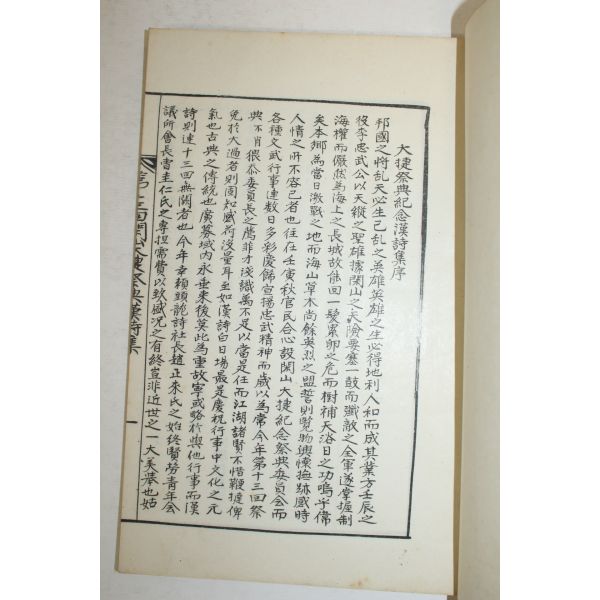 大捷祭典紀念漢詩集序
邦國之將乱天必生已乱之英雄英雄之生必得地利人和而成其業方壬辰之
役李忠武公以天縱之聖雄據閑山之天險要塞一鼓而殲敵之全軍遂掌握制
海權而儼然爲海上之長城故能回一髮累卵之危而樹補天浴日之功嗚乎偉
矣本鄕爲當日激戰之地而海山草木尚餘英烈之盟誓則覽物興懷撫跡感時
人情之所不容已者也往在壬庚秋官民合心設閑山大捷紀念祭典委員会而
各種文武行事連数日多彩慶歸宣揚忠武精神而歲以爲常今年第十三回祭
典不肖猥忝委員長之薦菲才淺識萬不足以當是任而江湖諸賢不惜鞭撻俾
免於大過者則罔知感荷沒量耳至如漢詩白日場最是慶祝行事中文化之元
氣也古典之傳統也廣募域內永垂來後莫此爲重故寧或略於與他行事而漢
詩則連十三回無闕者也今年幸賴頭龍詩社長趙正來氏之始終賢勞青年会
議所會長雲圭仁氏之專担需費以致盛況之有終豈非近世之一大美擧也姑
第十三回閑山大捷祭典漢詩集
一